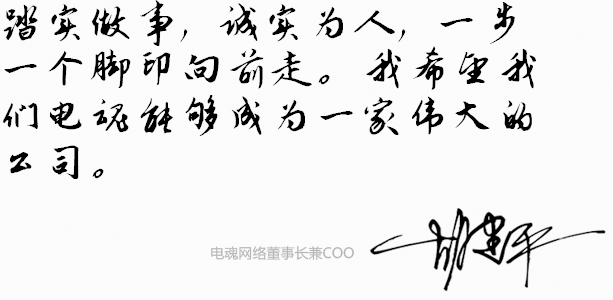 踏实做事，诚实为人，一步
一个脚印向前走。我希望我
们电魂能够成为一家伟大的
公司。
电魂网络董事长兼COO 胡建平